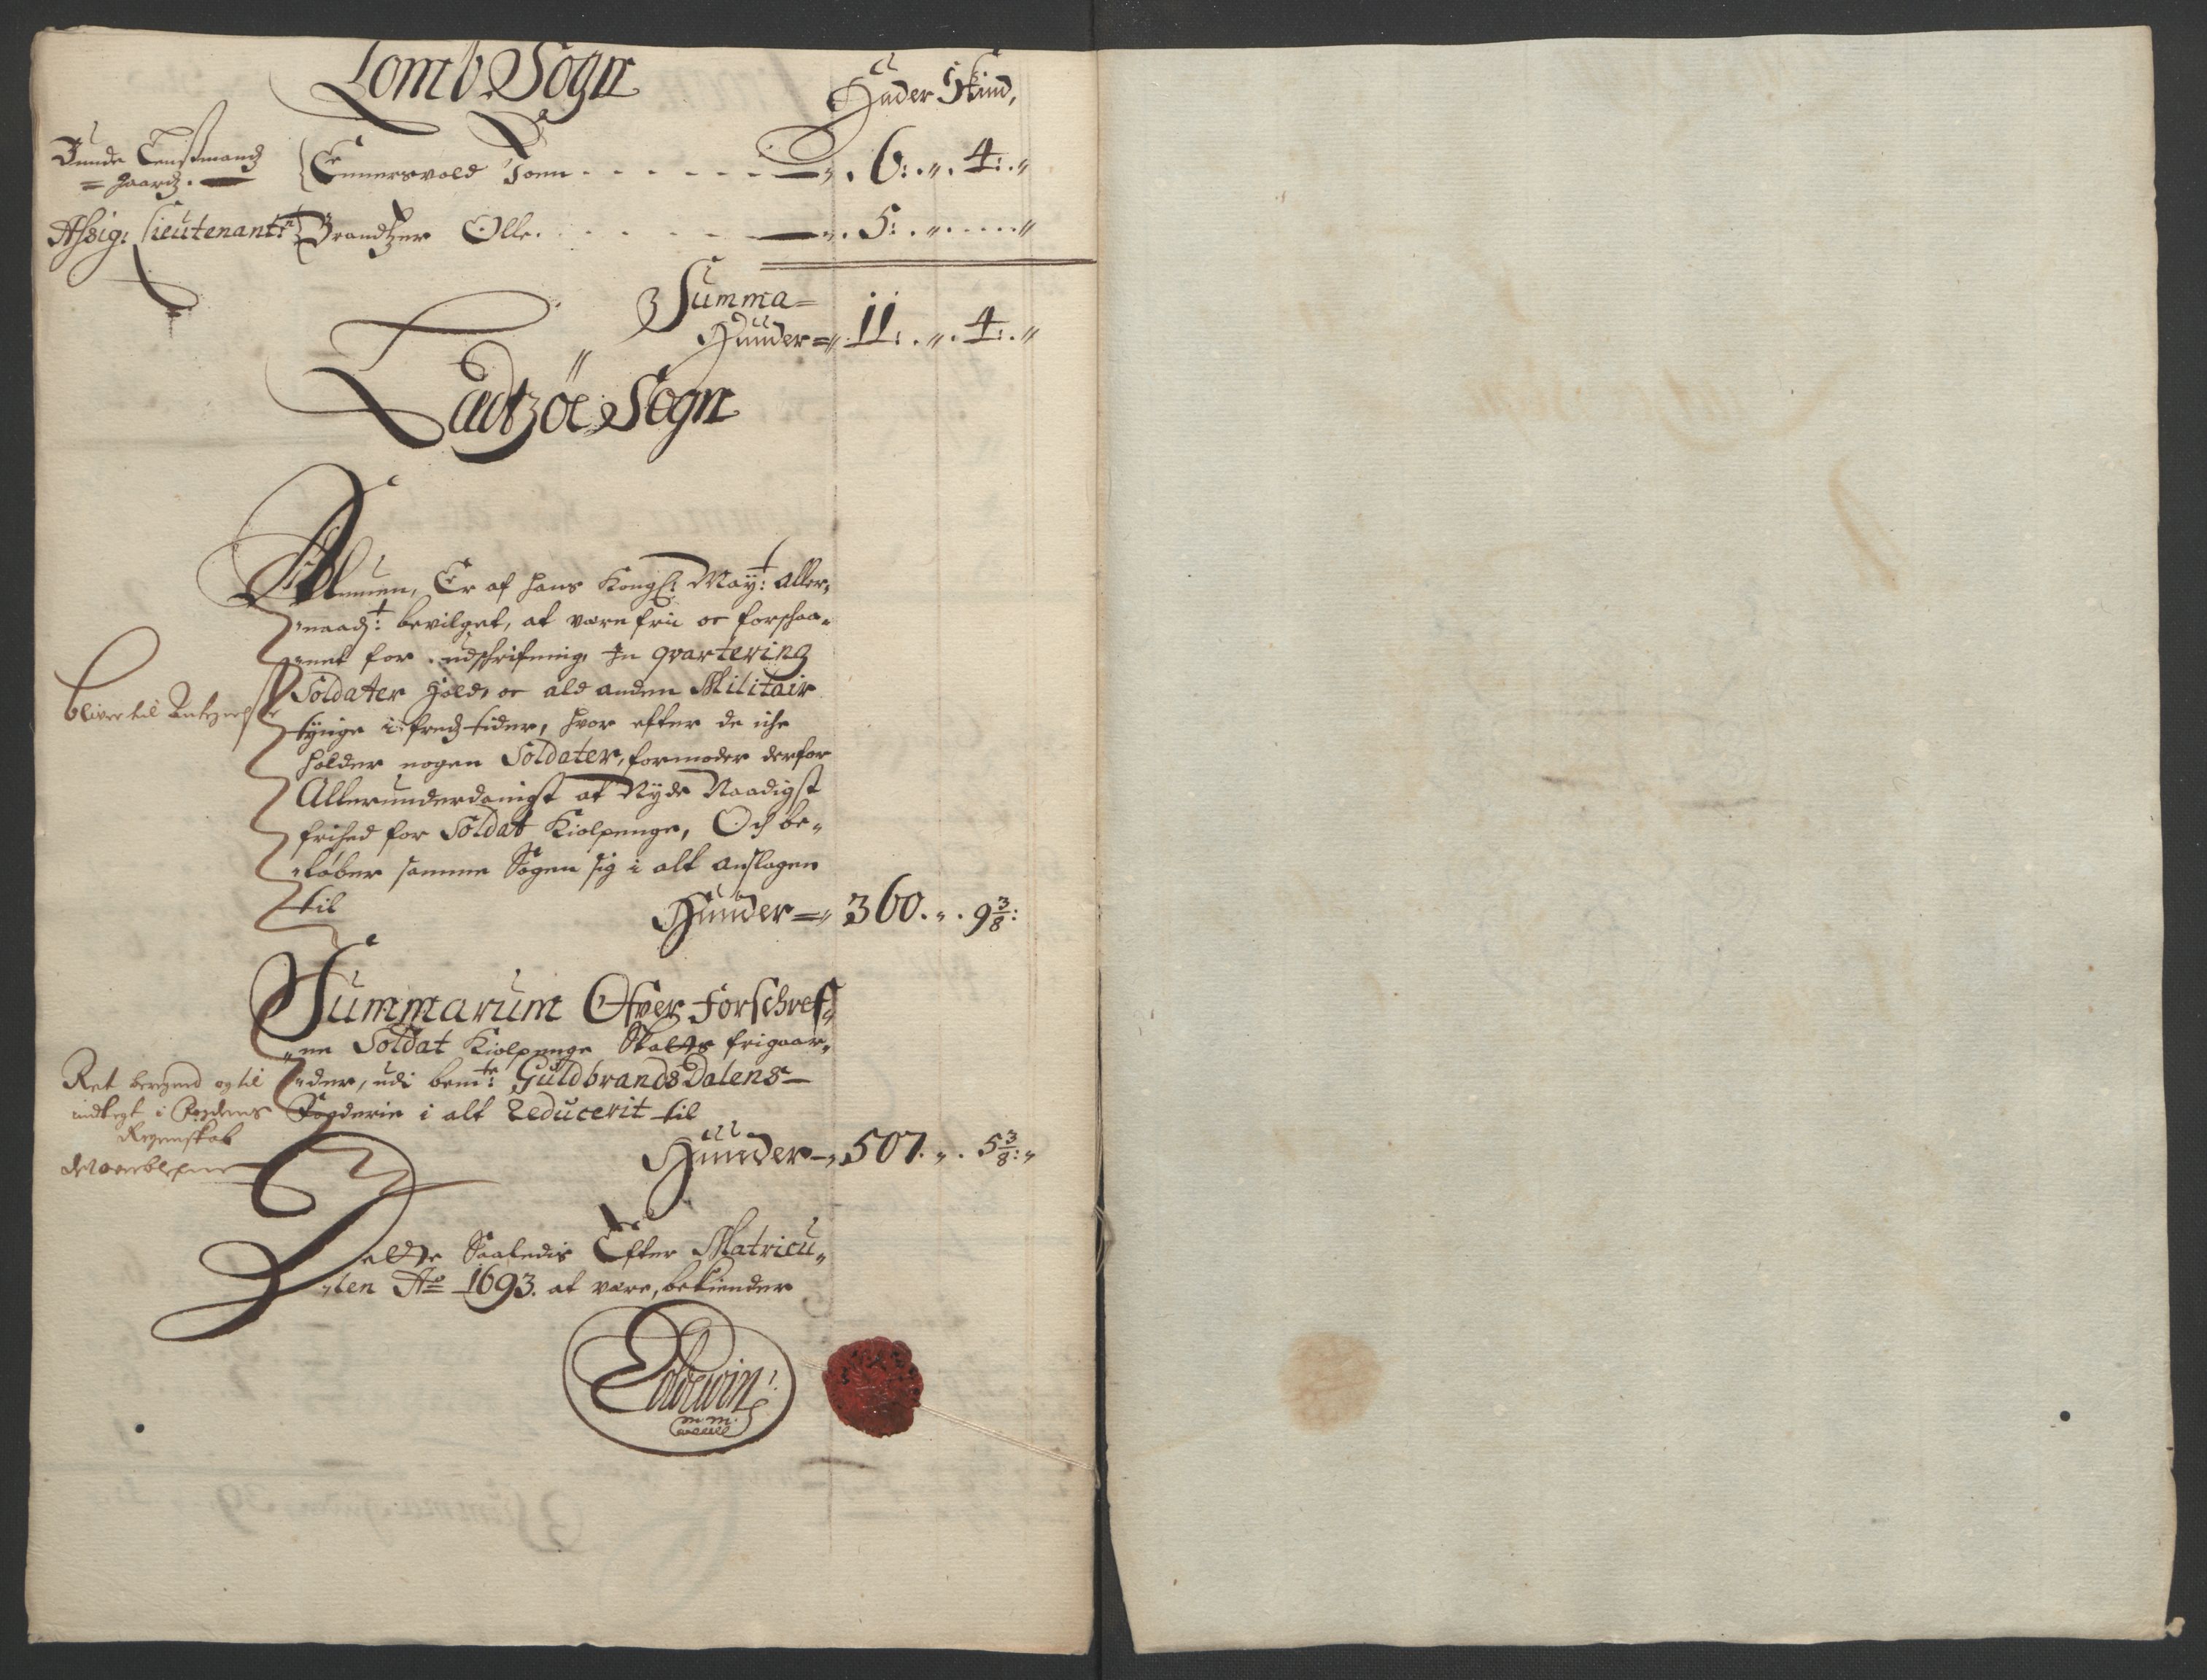 Lomb Sogn
Huder Skind,
Bunde Lensmands
= gaard.
Ennersvold Joen . . . . . . 6: „ 4: „
Assig: Lieutenantz Brandtzer Olle. . . . . . 5: „ . . . . „
Summa =
Huuder = 11: „ 4: „
Ladtzöe Sogn
Almuen, Er af hans Kongl: May:t Aller„
„naadt: bevilget, at være frii oc forskaa„
„net for udskrifning, In qvartering
Soldater hold, oc ald anden Militair
tynge i freds tider, hvor efter de iche
holder nogen Soldater, formoder derfor
Allerunderdanigst at Nyde Naadigst
frihed for Soldat Kiolpenge, Och be„
„løber samme Sogen sig i alt anslagen
til
bliver til
Huuder = 360. „. 9 3/8:
Summarum Ofver Forschref„
„ne Soldat Kiolpenge frigaar„
„der, udi bem:te Guldbrandsdalens
Fogderie i alt Reducerit til
Ret beregned og til
indtegt i
Regenskab
Huuder = 507. „. 5 3/8: „
Dette Saaledis Efter Matricu„
„len Ao 1693. at være, bekiender
m m.